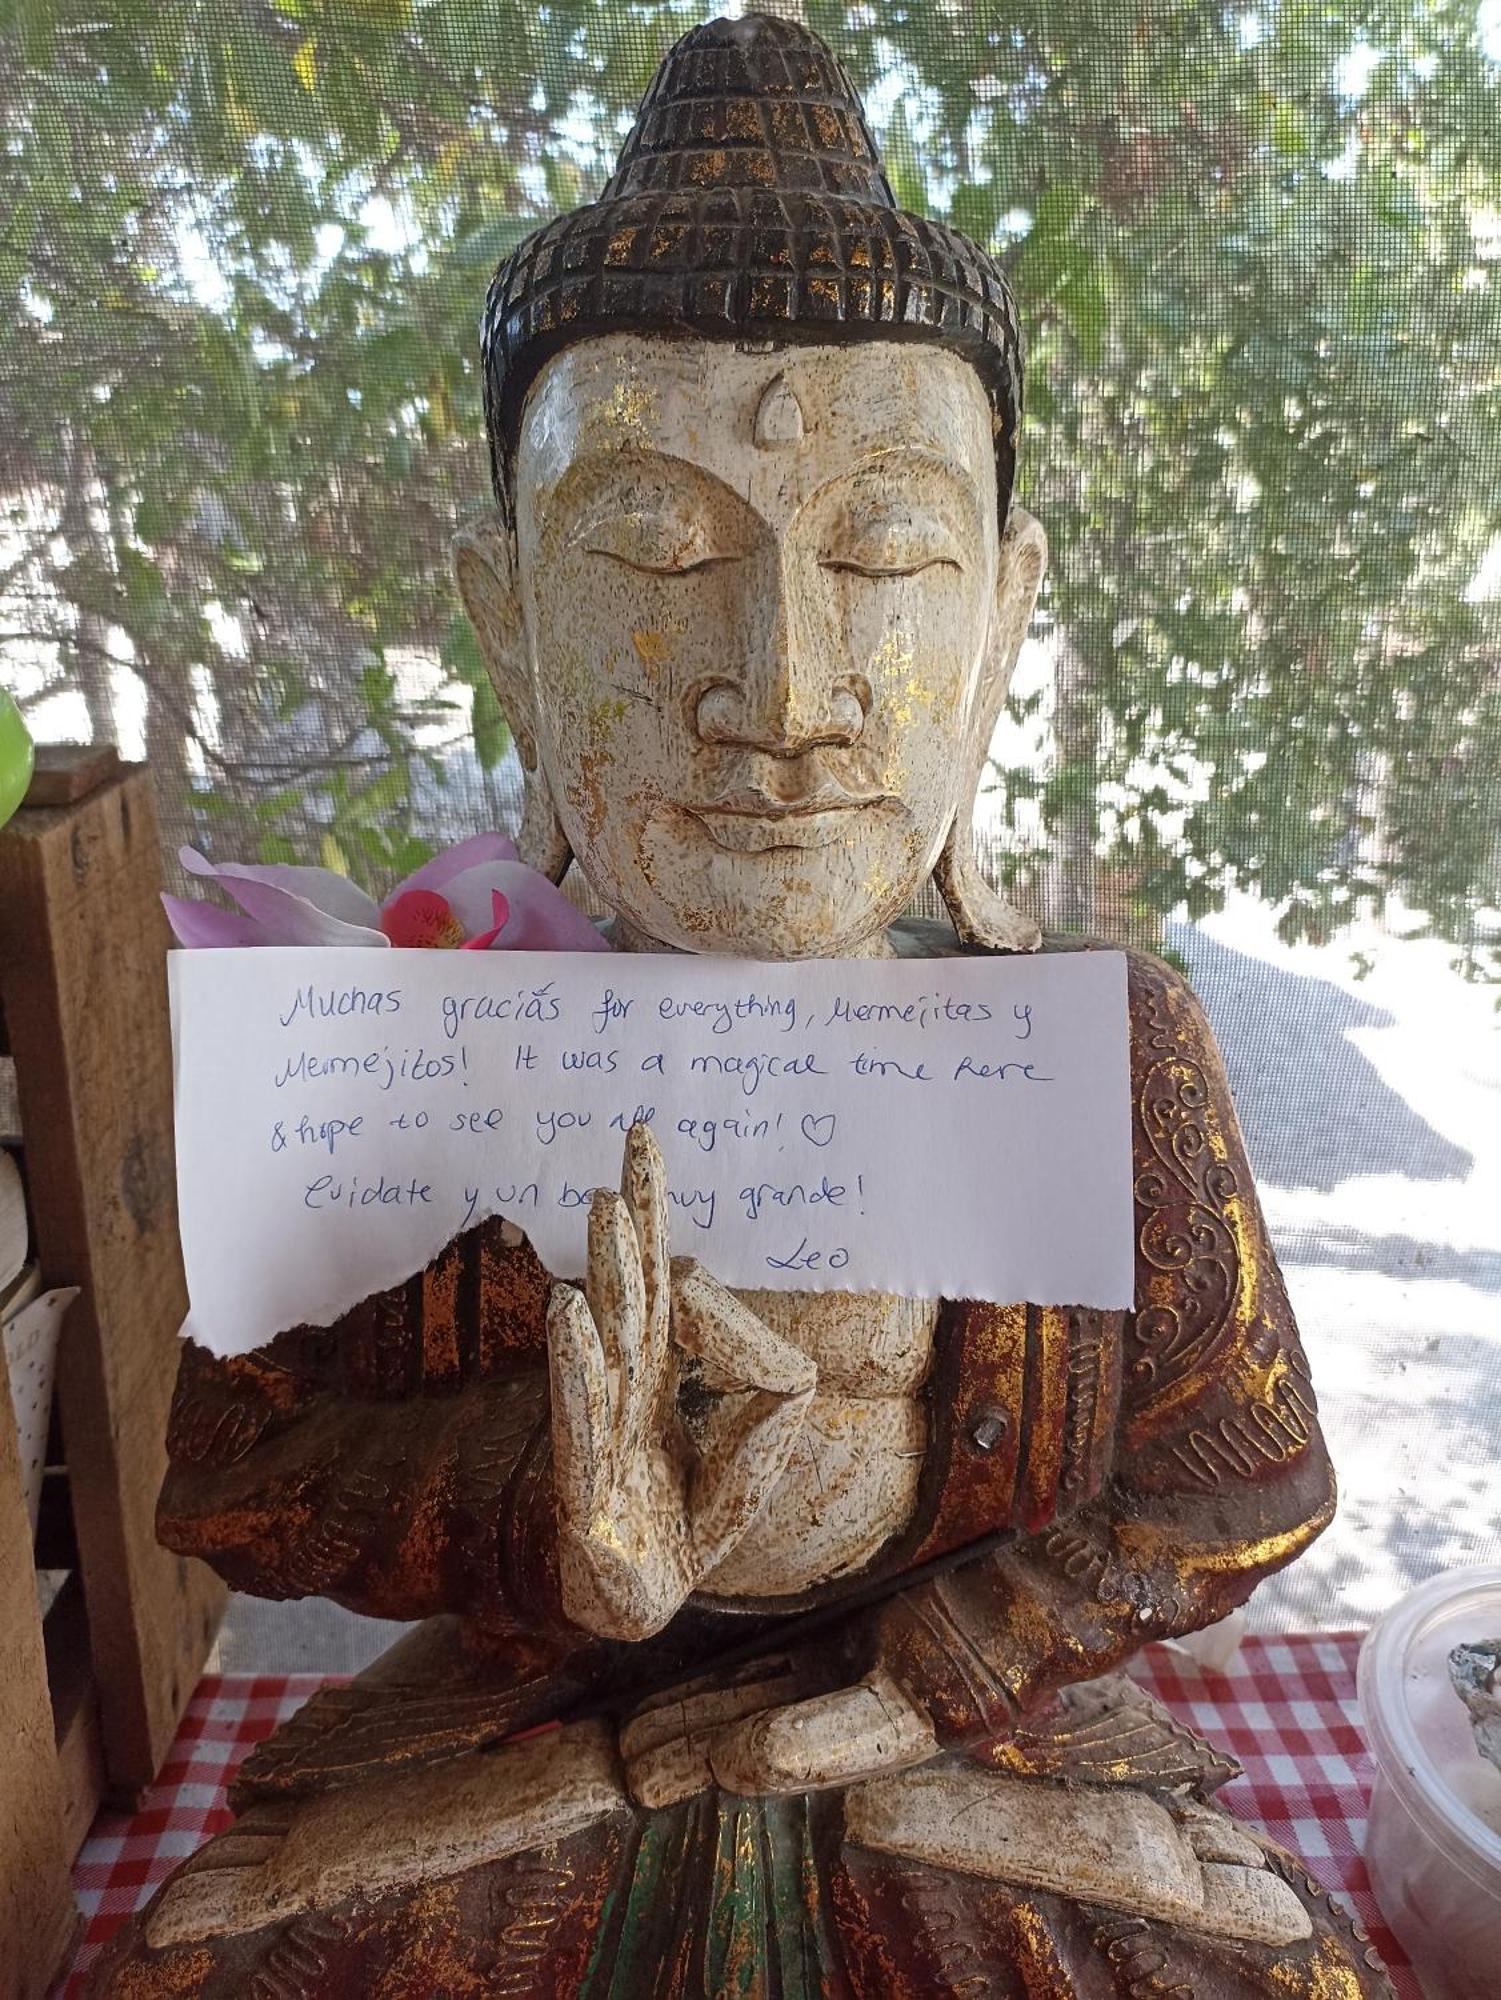 Muchas gracias for everything, Mermejitas y
Mermejitos! It was a magical time here
& hope to see you all again! ♡
Cuidate y un muy grande!
Leo